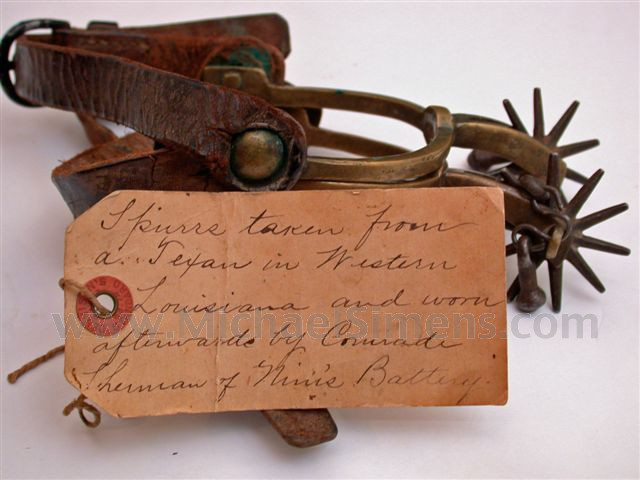 Spurrs taken from
a. Texan in Western
Louisiana and worn
www.MichaelSimens.com
afterwards by Comrade
Sherman of Nim's Battery.